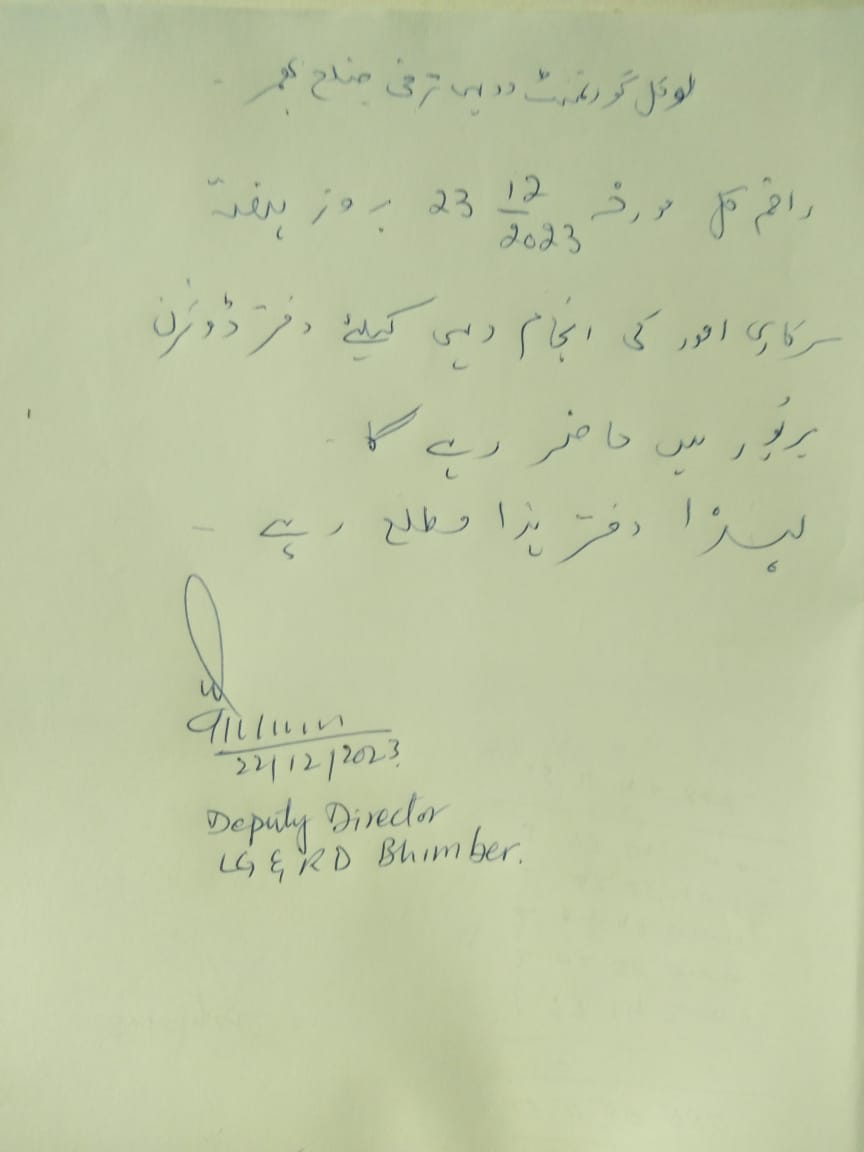 لوکل گورنمنٹ دیہی ترقی ضلع بھمبر ۔
راقم کل مورخہ 23 12/2023 بروز ہفتہ
سرکاری امور کی انجام دہی کیلئے دفتر ڈویژن
میرپور میں حاضر رہے گا ۔
لہذا دفتر ہذا مطلع رہے ۔
22/12/2023
Deputy Director
LG & RD Bhimber.